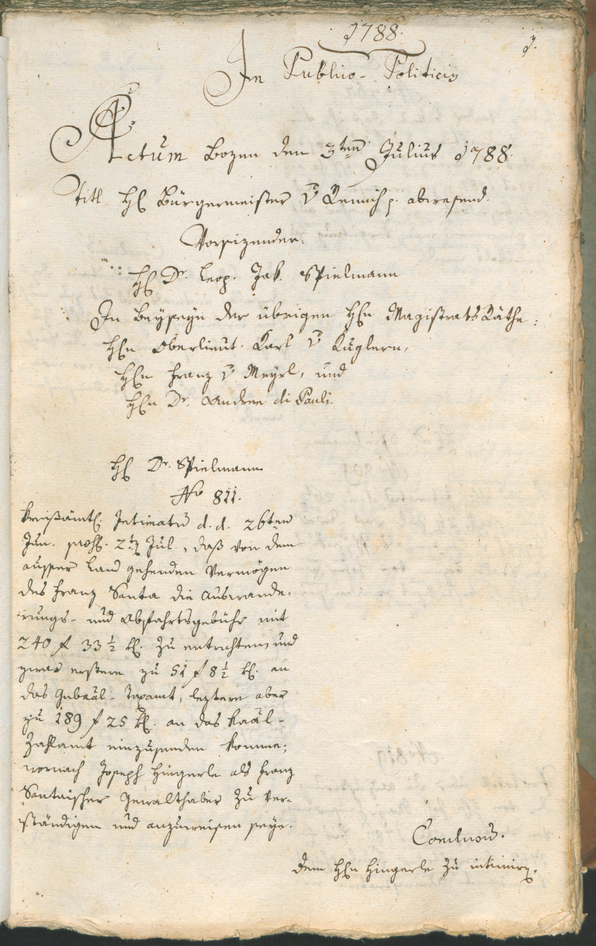 1788.
1.
In Publico-Politicis
Actum Bozen den 3ten Julius 1788.
Titl. H. Bürgermeister v Remich p. abwesend.
Vorsizender.
H. Dr. Leop. Jak. Spielmann
In Beyseyn der übrigen Hn Magistrats Räthe:
Hn Oberlieut. Karl v Kuglern,
Hn Franz v Meyrl, und
Hn Dr. Andree di Pauli.
H. Dr. Spielmann
No 811.
Kreisämtl. Intimatum d.d. 26ten
Jun. 2t. Jul., daß von dem
ausser Land gehenden Vermögen
des Franz Santa die Auswande-
rungs- und Abfahrtsgebühr mit
240 f 33 ½ k. zu entrichten, und
zwar erstere zu 51 f 8 ½ k. an
das Taxamt, leztere aber
zu 189 f 25 k. an das Kaal-
Zahlamt einzusenden komme;
wornach Joseph Hingerle als Franz
Santaischer Gewalthaber zu ver-
ständigen und anzuweisen seye.
Conclusum.
Dem Hn Hingerle zu intimiren.